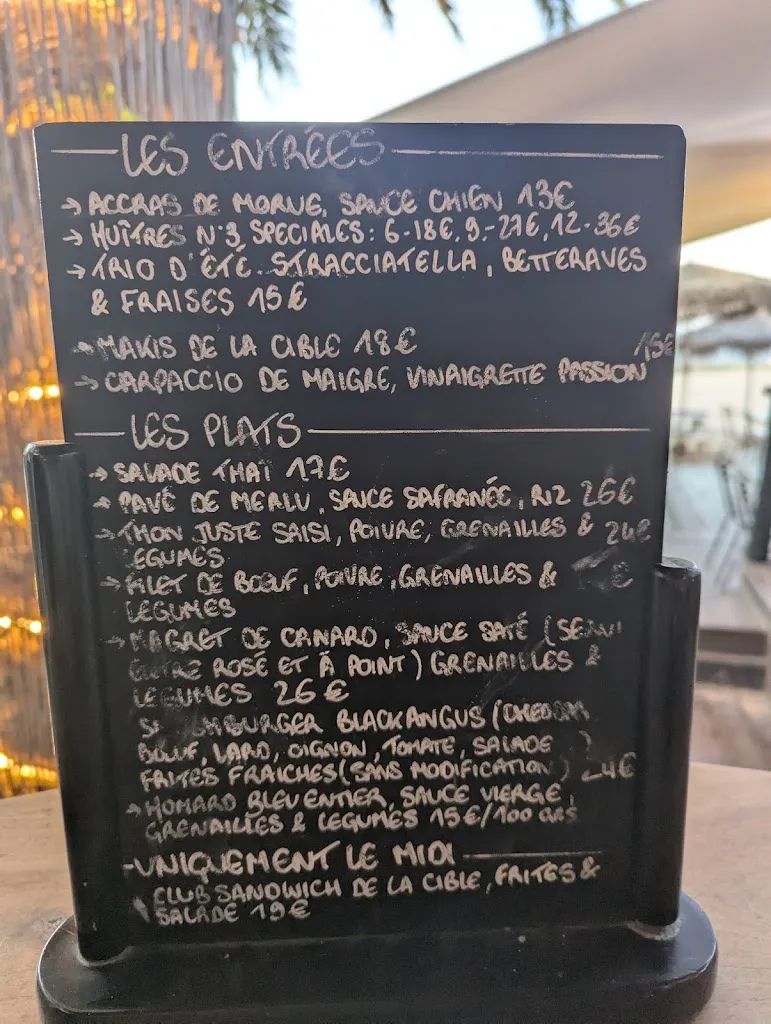 LES ENTRÉES
→ ACCRAS DE MORUE, SAUCE CHIEN 13€
→ HUÎTRES N°3 SPECIALES: 6-18€, 9-27€, 12-36€
→ TRIO D'ÉTÉ STRACCIATELLA, BETTERAVES
& FRAISES 15€
→ MAKIS DE LA CIBLE 18€
→ CARPACCIO DE MAIGRE, VINAIGRETTE PASSION 15€
LES PLATS
→ SALADE THAÏ 17€
→ PAVÉ DE MERLU, SAUCE SAFRANÉE, RIZ 26€
→ THON JUSTE SAISI, POIVRE, GRENAILLES & 24€
LEGUMES
→ FILET DE BŒUF, POIVRE, GRENAILLES & €
LEGUMES
→ MAGRET DE CANARD, SAUCE SATÉ (SERVI
ENTRE ROSÉ ET À POINT) GRENAILLES &
LEGUMES 26€
BLACK ANGUS (CHEDDAR
BŒUF, LARD, OIGNON, TOMATE, SALADE )
FRITES FRAICHES (SANS MODIFICATION) 24€
→ HOMARD BLEU ENTIER, SAUCE VIERGE,
GRENAILLES & LEGUMES 15€/100 GRS
-UNIQUEMENT LE MIDI
CLUB SANDWICH DE LA CIBLE, FRITES &
SALADE 19€